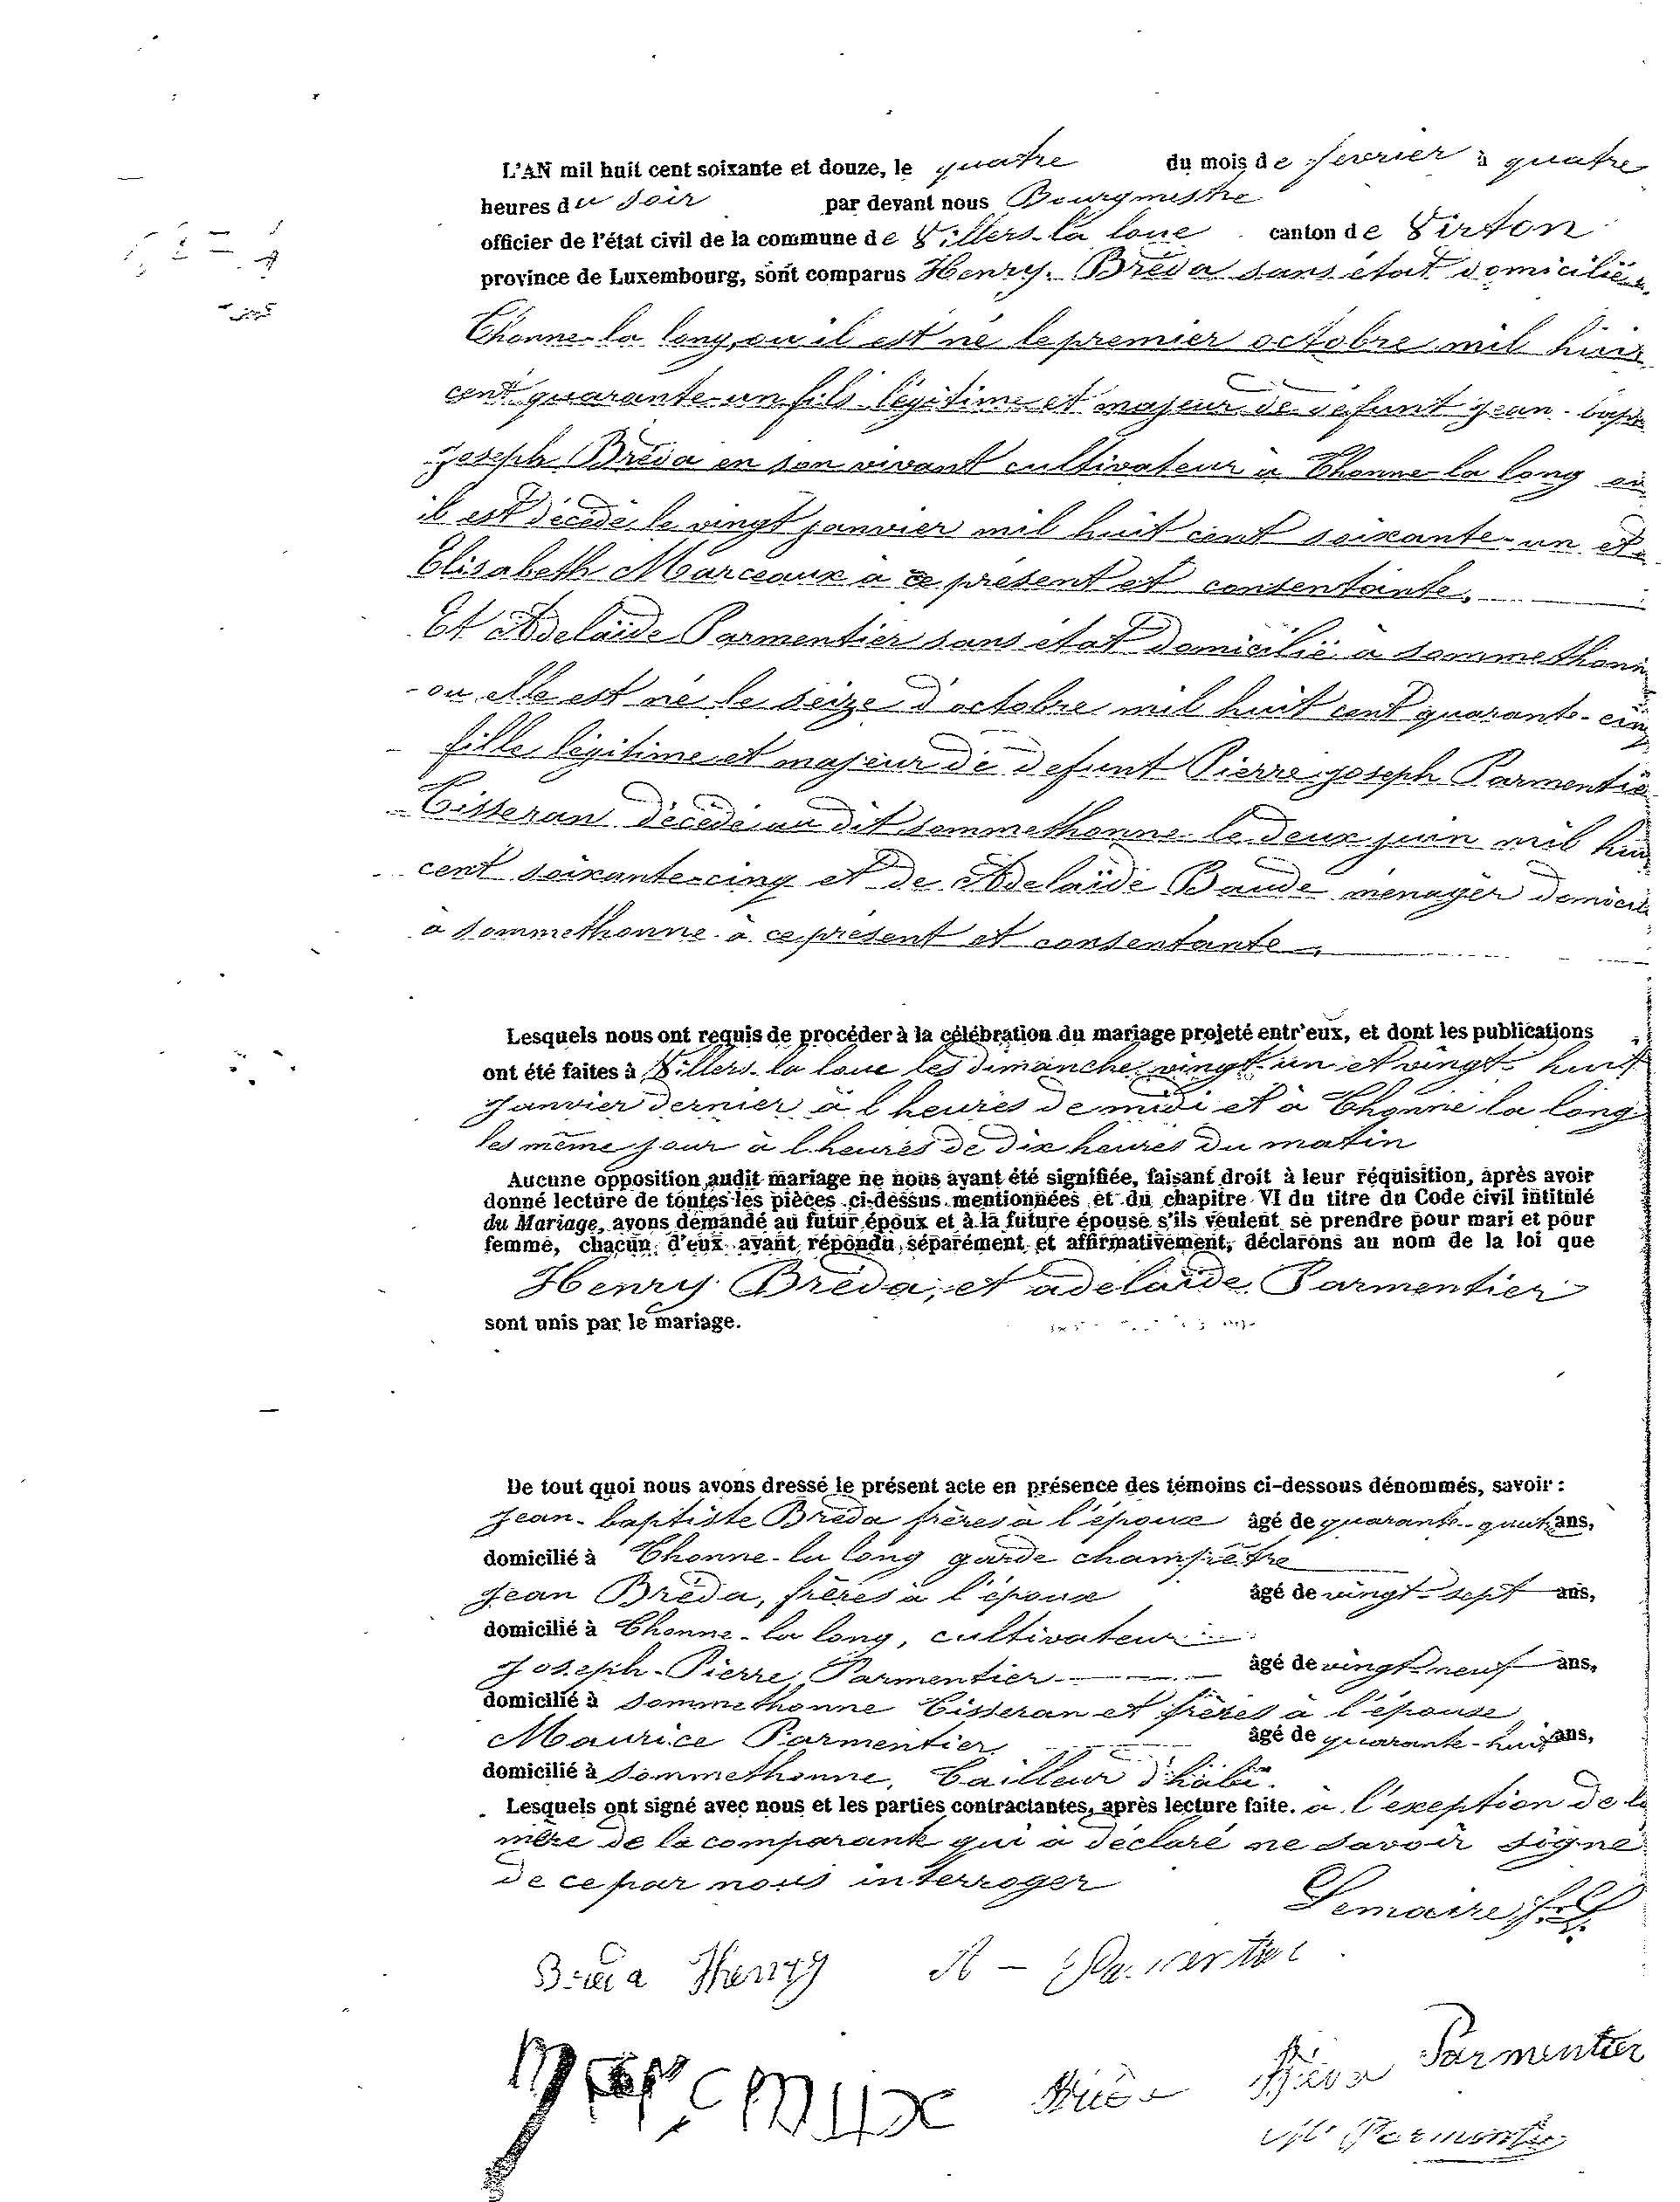 L'AN mil huit cent soixante et douze, le quatre du mois de fevrier à quatre
heures du soir par devant nous Bourgmestre
officier de l'état civil de la commune de Villers-la loue canton de Virton
province de Luxembourg, sont comparus Henry Bréda sans état domicilié à
Thonne-la long, ou il est né le premier octobre mil huit
cent quarante-un fils légitime et majeur de défunt jean-bapte
joseph Bréda en son vivant cultivateur à Thonne-la long où
il est décédé le vingt janvier mil huit cent soixante-un et de
Elisabeth Marceaux à ce présent et consentante.
Et Adelaïde Parmentier sans état domicilié à sommethonne
ou elle est né le seize d'octobre mil huit cent quarante-cinq
fille légitime et majeur de defunt Pierre joseph Parmentier
Tisseran décédé au dit sommethonne le deux juin mil huit
cent soixante-cinq et de Adelaïde Baude menager domicilié
à sommethonne à ce présent et consentante
Lesquels nous ont requis de procéder à la célébration du mariage projeté entr'eux, et dont les publications
ont été faites à Villers-la loue les dimanche vingt-un et vingt-huit
Janvier dernier à l'heures de midi et à Thonne la long
les même jour à l'heures de dix heures du matin
Aucune opposition audit mariage ne nous ayant été signifiée, faisant droit à leur réquisition, après avoir
donné lecture de toutes les pièces ci-dessus mentionnées et du chapitre VI du titre du Code civil intitulé
du Mariage, avons demandé au futur époux et à la future épouse s'ils veulent se prendre pour mari et pour
femme, chacun d'eux ayant répondu séparément et affirmativement, déclarons au nom de la loi que
Henry Bréda, et adelaïde Parmentier
sont unis par le mariage.
De tout quoi nous avons dressé le présent acte en présence des témoins ci-dessous dénommés, savoir :
Jean-baptiste Bréda frères à l'époux âgé de quarante-quatre ans,
domicilié à Thonne-la long garde champêtre
Jean Bréda, frères à l'époux âgé de vingt-sept ans,
domicilié à Thonne-la long, cultivateur
Joseph-Pierre Parmentier âgé de vingt-neuf ans,
domicilié à sommethonne Tisseran et frères à l'épouse
Maurice Parmentier âgé de quarante-huit ans,
domicilié à sommethonne, Tailleur d'habi.
Lesquels ont signé avec nous et les parties contractantes, après lecture faite. à l'exeption de la
mère de la comparante qui à déclaré ne savoir signé
de ce par nous interroger
Lemaire
Breda Henry A - Parmentier
Parmentier
Bréda Bréda
M Parmentier